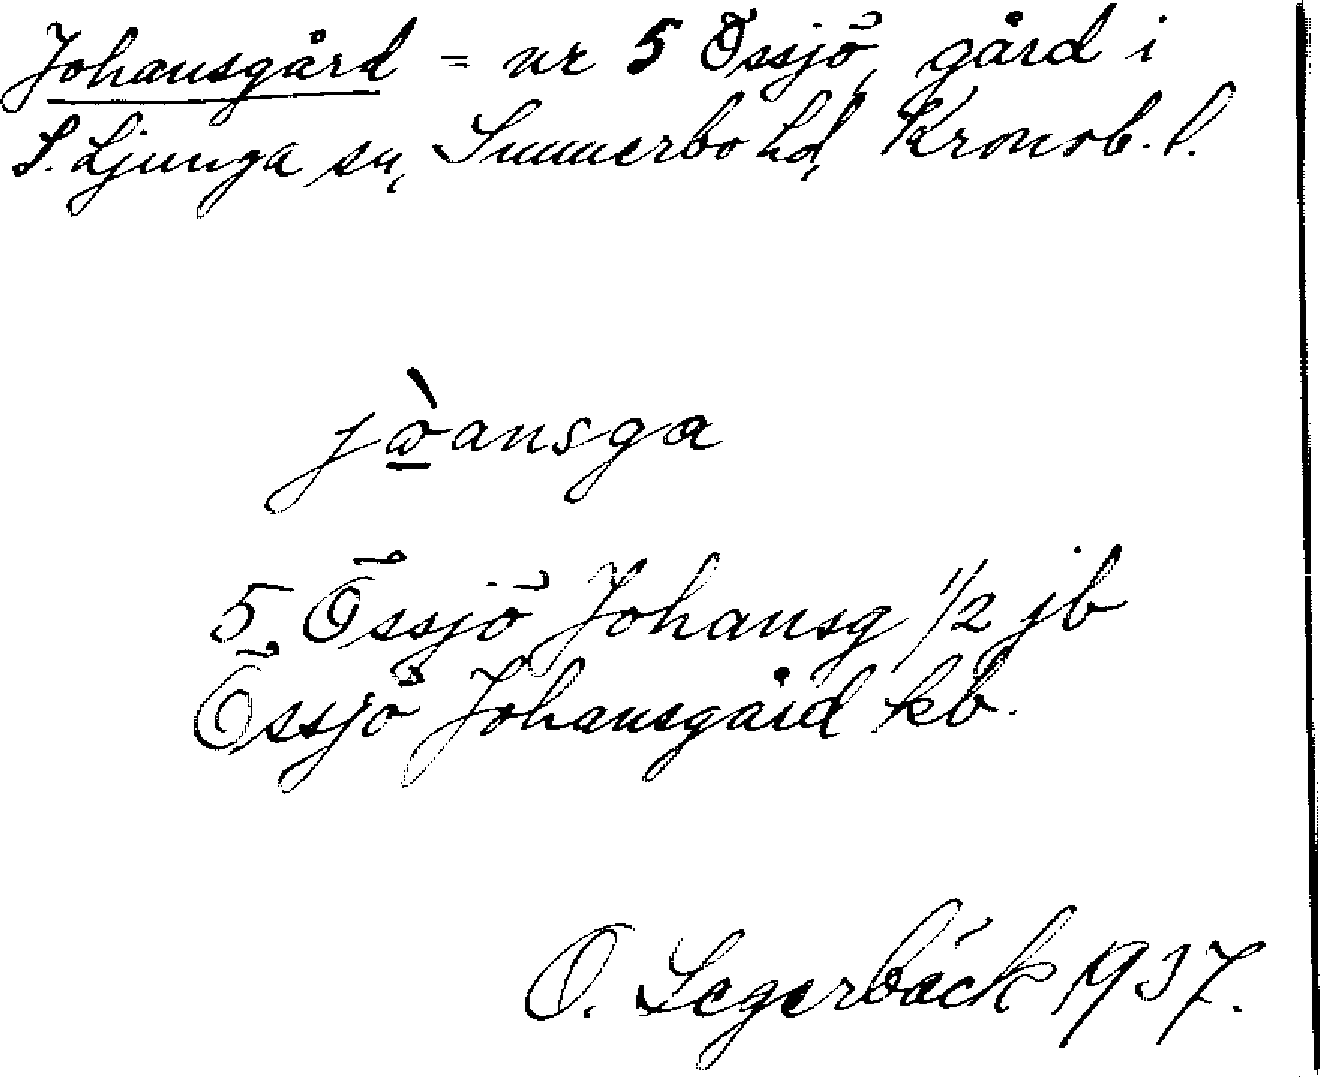 Johansgård = nr 5 Össjö, gård i
S. Ljunga sn, Sunnerbo hd, Kronob. l.
jò̱ansga
5. Össjö Johansg 1/2 jb
Össjö Johansgård kb.
O. Segerbäck 1937.